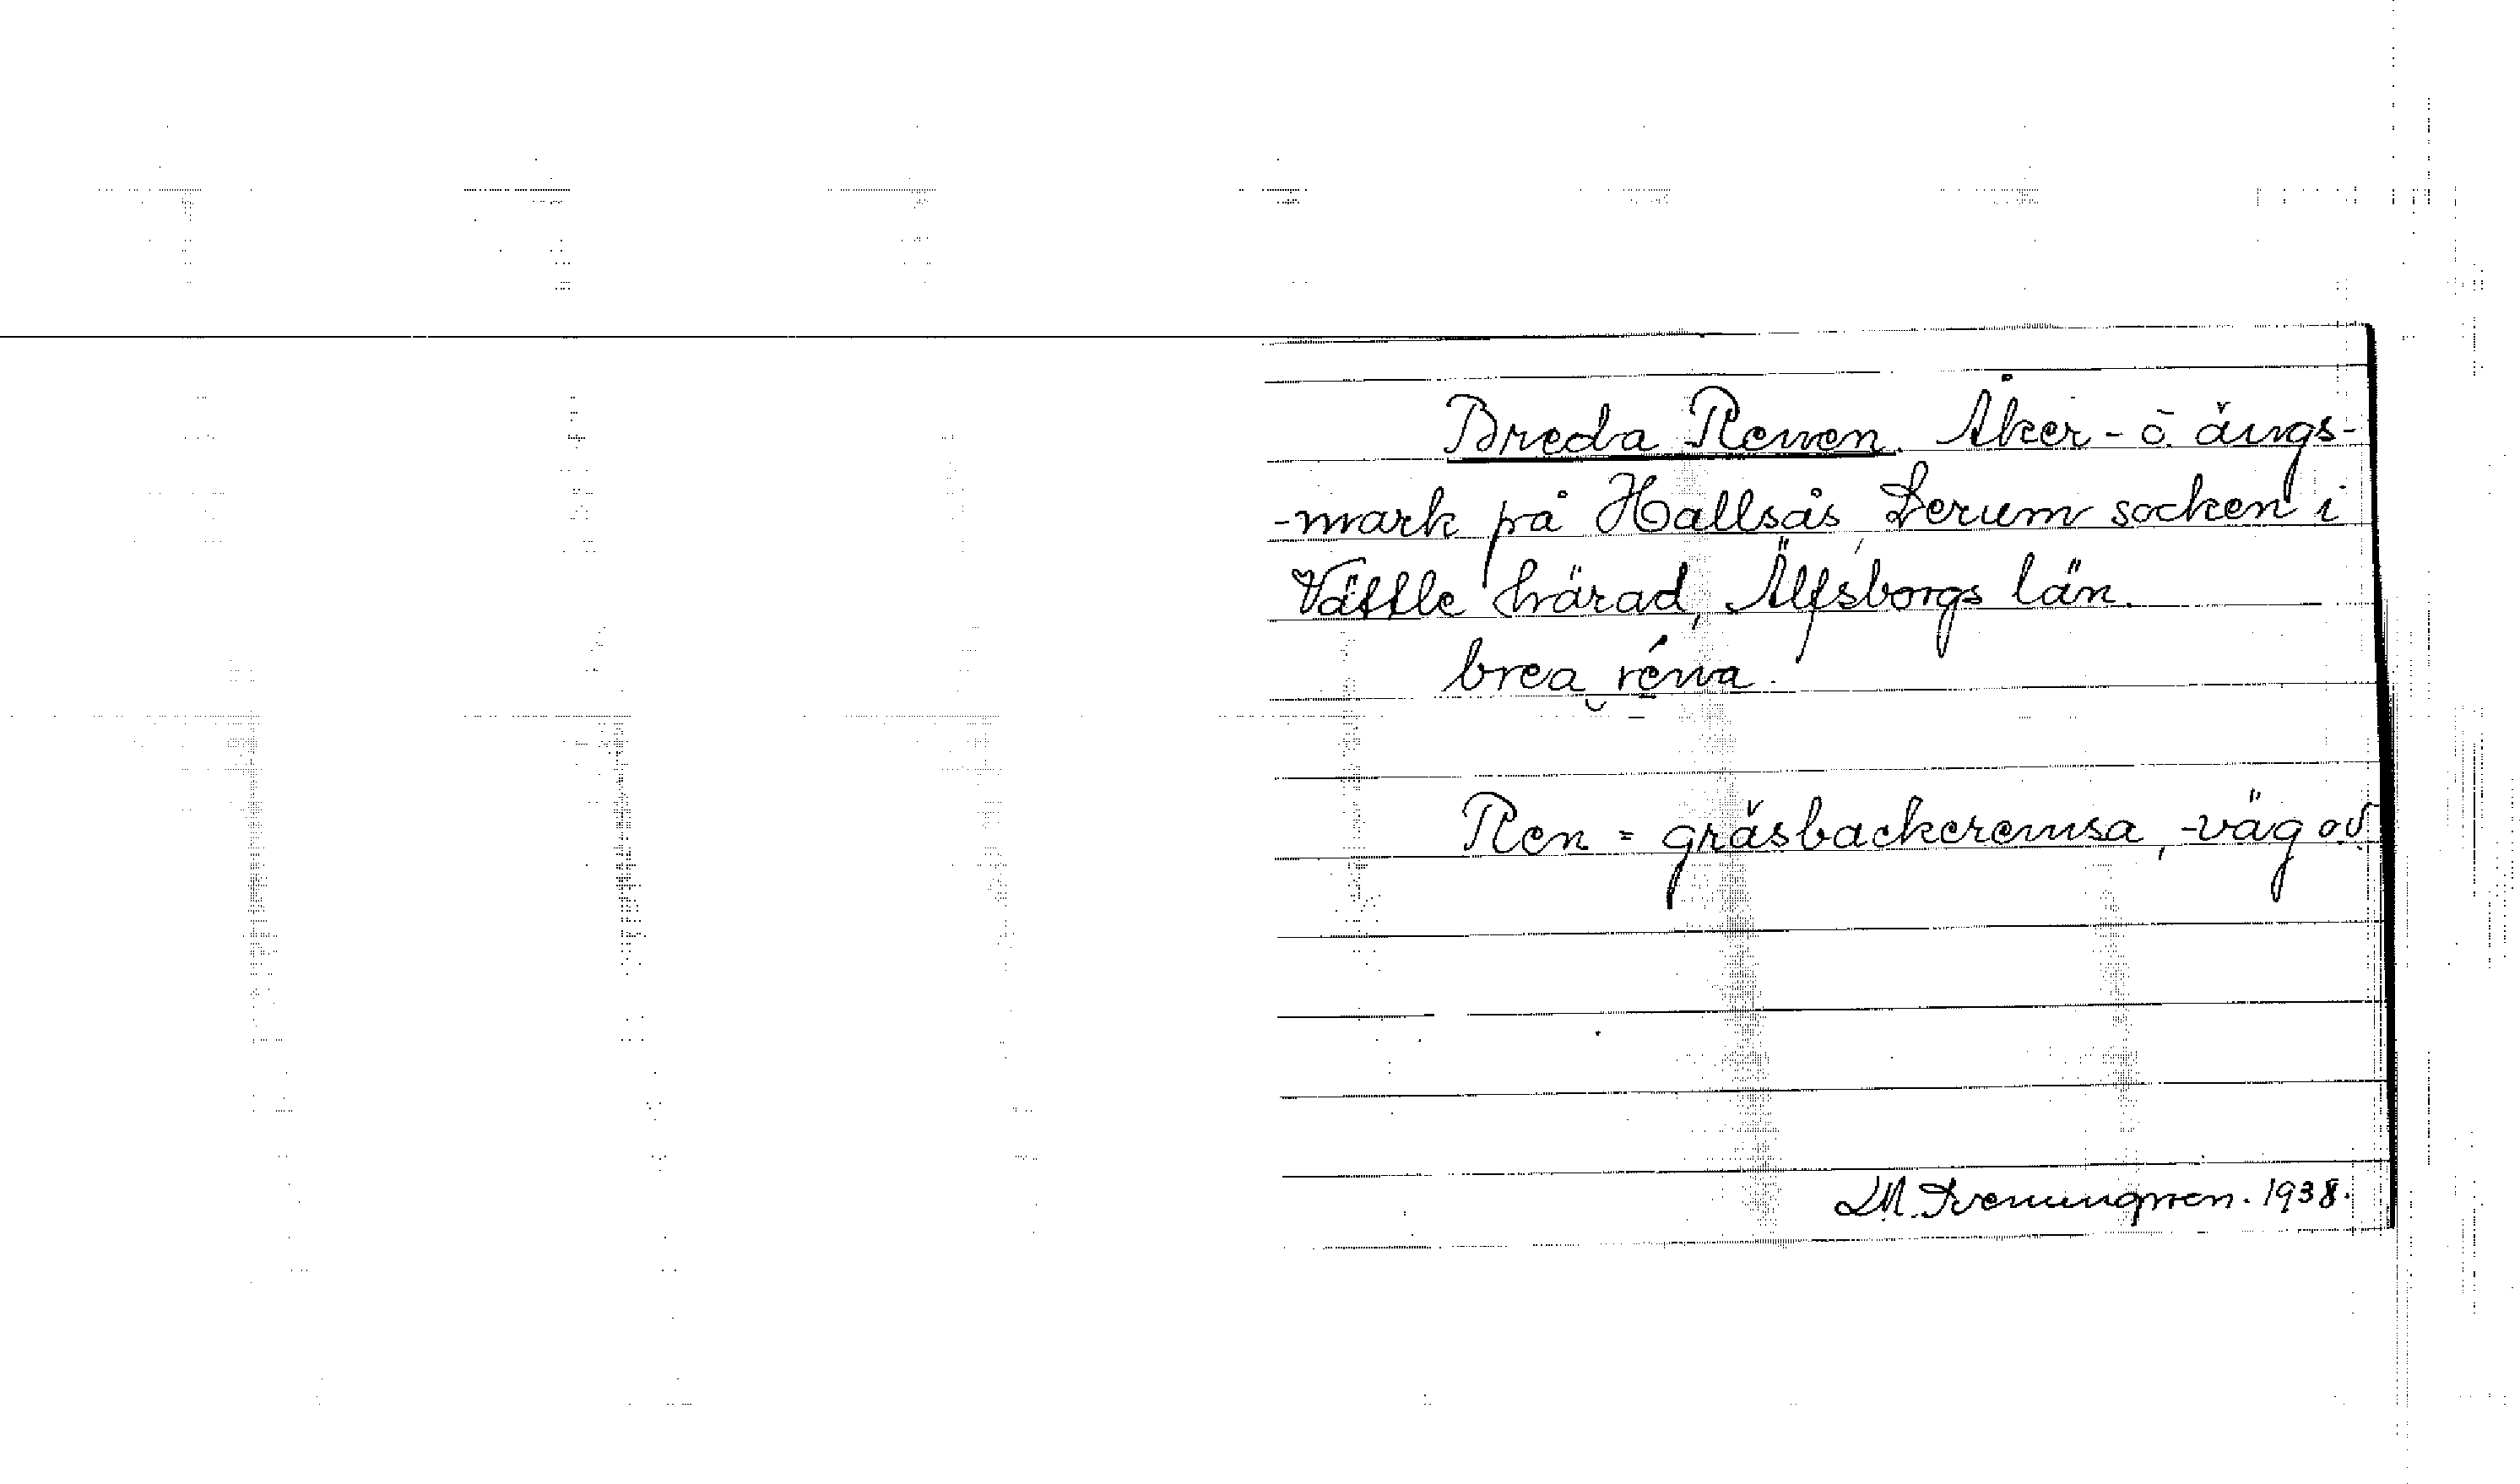 Breda Renen. Åker- o. ängs-
-mark på Hallsås, Lerum socken i
Vättle härad, Älfsborgs län.
brea réna.
Ren = gräsbackeremsa, -väg od.
1938.